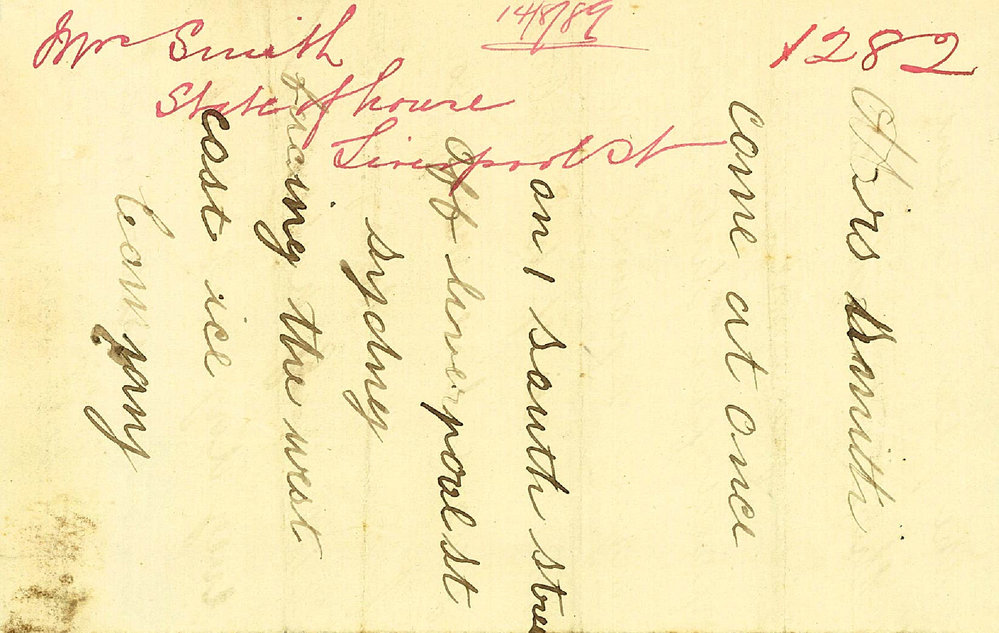 14/8/89
1282
Mrs Smith
State of house
Liverpool St
Mrs Smith
come at once
on 1 south stree
off liverpoal st
sydney
facing the west
cast ice
Company